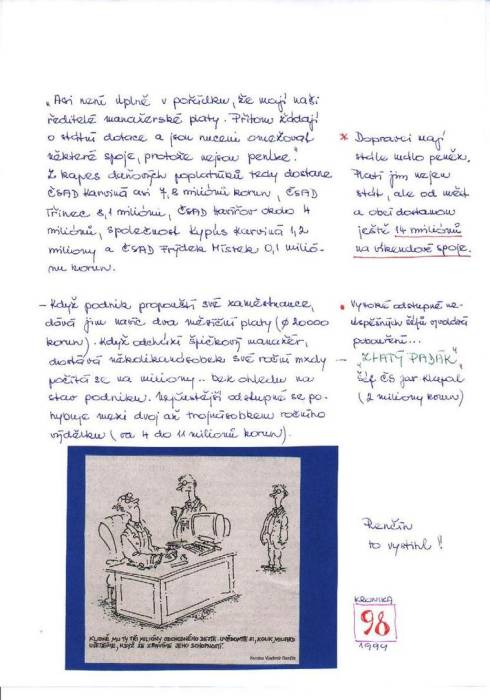 „Asi není úplně v pořádku, že mají naši
ředitelé manažerské platy. Přitom žádají
o státní dotace a jsou nuceni omezovat
některé spoje, protože nejsou peníze."
Z kapes daňových poplatníků tedy dostane
ČSAD Karviná asi 7,8 miliónů korun, ČSAD
Třinec 8,1 miliónů, ČSAD Havířov okolo 4
miliónů, společnost Kypus Karviná 1,2
miliony a ČSAD Frýdek Místek 0,1 milió-
nu korun.
* Dopravci mají
stále málo peněz.
Platí jim nejen
stát, ale od měst
a obcí dostanou
ještě 14 miliónů
na víkendové spoje.
– Když podnik propouští své zaměstnance,
dává jim navíc dva měsíční platy (ø 20000
korun). Když odchází špičkový manažer,
dostává několikanásobek své roční mzdy
počítá se na miliony... bez ohledu na
stav podniku. Nejčastější odstupné se po-
hybuje mezi dvoj až trojnásobkem ročního
výdělku (za 4 do 11 milionů korun).
• Vysoké odstupné ne-
úspěšných šéfů vyvolává
pobouření...
– „ZLATÝ PADÁK"
šéf ČS Jar Klapal
(2 miliony korun)
KLIDNĚ MU TY TŘI MILIÓNY ODCHODNÉHO DEJTE. UVĚDOMTE SI, KOLIK MILIARD
UŠETŘÍME, KDYŽ SE ZBAVÍME JEHO SCHOPNOSTÍ.
Kresba Vladimír Renčín
Renčín
to vystihl!
KRONIKA
98
1999